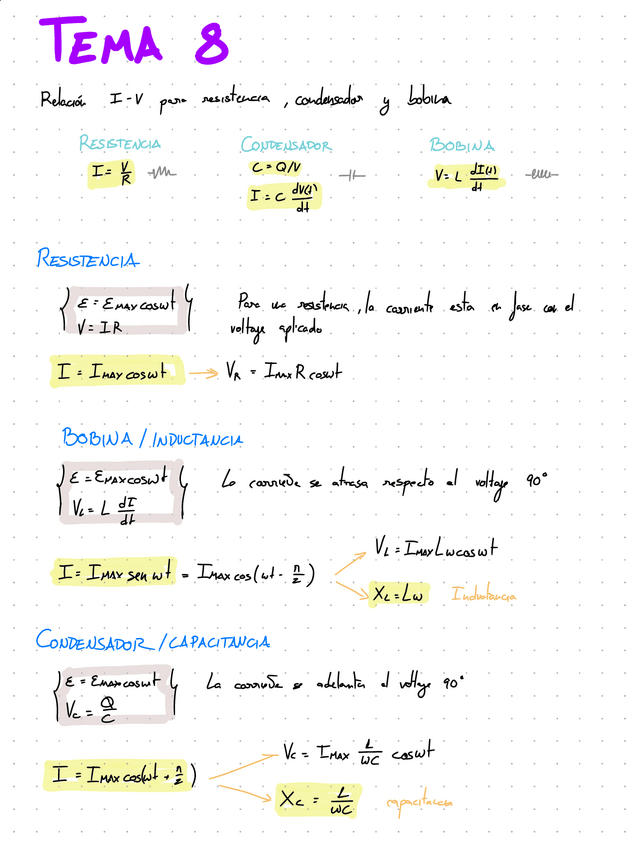 TEMA 8
Relación I-V para resistencia, condensador y bobina
RESISTENCIA CONDENSADOR BOBINA
I = V/R C = Q/V V = L dI(t)/dt
I = C dV(t)/dt
RESISTENCIA
ε = εMAX cos wt
V = IR
Para una resistencia, la corriente esta en fase con el
voltaje aplicado
I = IMAX cos wt → VR = IMAX R cos wt
BOBINA / INDUCTANCIA
ε = εMAX cos wt
VL = L dI/dt
La corriente se atrasa respecto al voltaje 90°
VL = IMAX Lw cos wt
I = IMAX sen wt = IMAX cos(wt - π/2)
XL = Lw Inductancia
CONDENSADOR / CAPACITANCIA
ε = εMAX cos wt
VC = Q/C
La corriente se adelanta al voltaje 90°
VC = IMAX 1/wC cos wt
I = IMAX cos(wt + π/2)
XC = 1/wC capacitancia